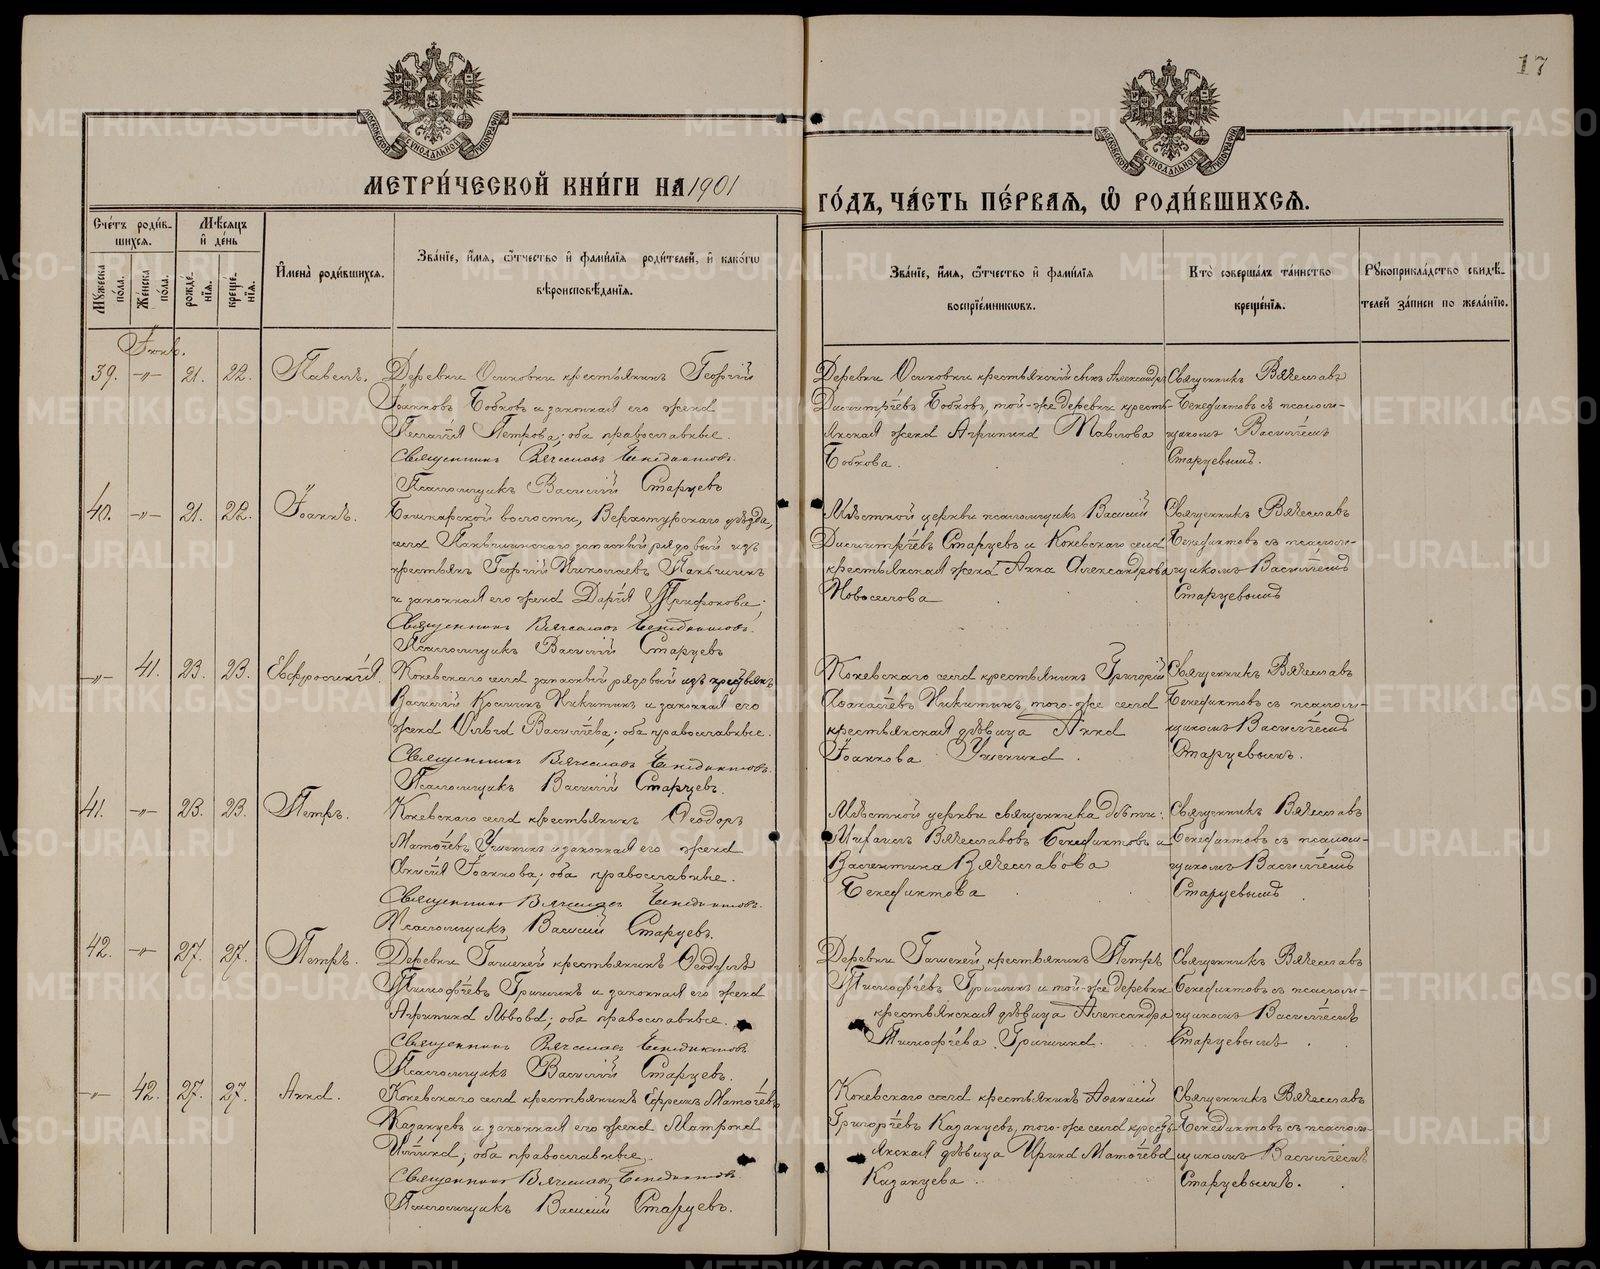 17
МОСКОВСКОЙ СѴНОДАЛЬНОЙ ТИПОГРАФІИ
МОСКОВСКОЙ СѴНОДАЛЬНОЙ ТИПОГРАФІИ
МЕТРИ́ЧЕСКОЙ КНИ́ГИ НА 1901
ГО́ДЪ, ЧА́СТЬ ПЕ́РВАѦ, Ѡ҆ РОДИ́ВШИХСѦ.
Сче́тъ роди́в-
шихсѧ.
Мꙋ́жеска по́ла.
Же́нска по́ла.
Мѣ́сѧцъ
и҆ де́нь
рожде́-
нїѧ.
креще́-
нїѧ.
И҆мена̀ роди́вшихсѧ.
Зва́нїе, и҆́мѧ, ѻ҆́тчество и҆ фами́лїѧ роди́телей, и҆ како́гѡ
вѣроисповѣ́данїѧ.
Зва́нїе, и҆́мѧ, ѻ҆́тчество и҆ фами́лїѧ
воспрїе́мникѡвъ.
Кто̀ соверша́лъ та́инство
креще́нїѧ.
Рꙋкоприкла́дство свидѣ́-
телей за́писи по жела́нїю.
Іюнь.
39. -"- 21. 22. Павелъ.
Деревни Осиновки крестьянинъ Георгій
Іоанновъ Бобновъ и законная его жена
Пелагія Петрова; оба православные.
Священникъ Вячеславъ Бенедиктовъ.
Псаломщикъ Василій Старцевъ
Деревни Осиновки крестьянскій сынъ Александръ
Димитріевъ Бобновъ, той-же деревни кресть-
янская жена Агрипина Павлова
Бобнова.
Священникъ Вячеславъ
Бенедиктовъ съ псалом-
щикомъ Василіемъ
Старцевымъ.
40. -"- 21. 22. Іоаннъ.
волости, Верхотурскаго уѣзда,
села Паньшинскаго запасный рядовый изъ
крестьянъ Георгій Николаевъ Паньшинъ
и законная его жена Дарія Трифонова;
Священникъ Вячеславъ Бенедиктовъ.
Псаломщикъ Василій Старцевъ
Мѣстной церкви псаломщикъ Василій
Димитріевъ Старцевъ и Коневскаго села
крестьянская жена Анна Александрова
Новоселова
Священникъ Вячеславъ
Бенедиктовъ съ псалом-
щикомъ Василіемъ
Старцевымъ
-"- 41. 23. 23. Евфросинія.
Коневскаго села запасный рядовый изъ крестьянъ
Василій Косминъ Никитинъ и законная его
жена Васильева; оба православные.
Священникъ Вячеславъ Бенедиктовъ.
Псаломщикъ Василій Старцевъ.
Коневскаго села крестьянинъ Григорій
Аѳанасіевъ Никитинъ, того-же села
крестьянская дѣвица Анна
Іоаннова Ушенина.
Священникъ Вячеславъ
Бенедиктовъ съ псалом-
щикомъ Василіемъ
Старцевымъ.
41. -"- 23. 23. Петръ.
Коневскаго села крестьянинъ Ѳеодоръ
Матѳіевъ Ушенинъ и законная его жена
Іоаннова; оба православные.
Священникъ Вячеславъ Бенедиктовъ.
Псаломщикъ Василій Старцевъ.
Мѣстной церкви священника дѣти:
Михаилъ Вячеславовъ Бенедиктовъ и
Валентина Вячеславова
Бенедиктова
Священникъ Вячеславъ
Бенедиктовъ съ псалом-
щикомъ Василіемъ
Старцевымъ
42. -"- 27. 27. Петръ.
Деревни Гашеней крестьянинъ Ѳеодоръ
Тимоѳіевъ Гришинъ и законная его жена
Агрипина Львова; оба православные.
Священникъ Вячеславъ Бенедиктовъ.
Псаломщикъ Василій Старцевъ.
Деревни Гашеней крестьянинъ Петръ
Тимоѳіевъ Гришинъ и той-же деревни
крестьянская дѣвица Александра
Тимоѳіева Гришина.
Священникъ Вячеславъ
Бенедиктовъ съ псалом-
щикомъ Василіемъ
Старцевымъ.
-"- 42. 27. 27. Анна.
Коневскаго села крестьянинъ Ефремъ Матѳіевъ
Казанцевъ и законная его жена Матрона
оба православные.
Священникъ Вячеславъ Бенедиктовъ.
Псаломщикъ Василій Старцевъ.
Коневскаго села крестьянинъ Аѳанасій
Григорьевъ Казанцевъ, того-же села кресть-
янская дѣвица Ирина Матѳіева
Казанцева.
Священникъ Вячеславъ
Бенедиктовъ съ псалом-
щикомъ Василіемъ
Старцевымъ.
METRIKI.GASO-URAL.RU